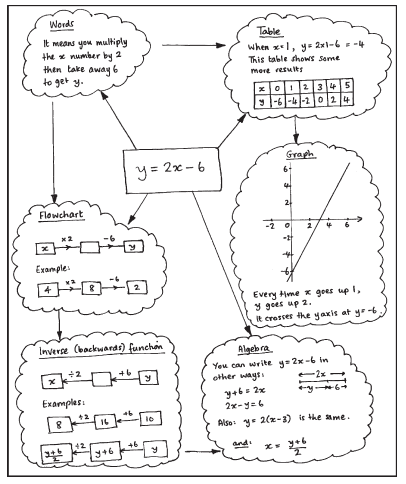 Words
It means you multiply
the x number by 2
then take away 6
to get y.
Table
When x=1, y=2x1-6 = -4
This table shows some
more results
x 0 1 2 3 4 5
y -6 -4 -2 0 2 4
y = 2x - 6
Graph
6
4
2
-2 0 2 4 6
-2
-4
-6
Every time x goes up 1,
y goes up 2.
It crosses the y axis at y=-6.
Flowchart
x ×2 -6 y
Example:
4 ×2 8 -6 2
Inverse (backwards) function
x ÷2 +6 y
Examples:
8 ÷2 16 +6 10
y+6/2 ÷2 y+6 +6 y
Algebra
You can write y=2x-6 in
other ways:
2x
y+6 = 2x
y 6
2x-y=6
Also: y=2(x-3) is the same.
and: x = y+6/2